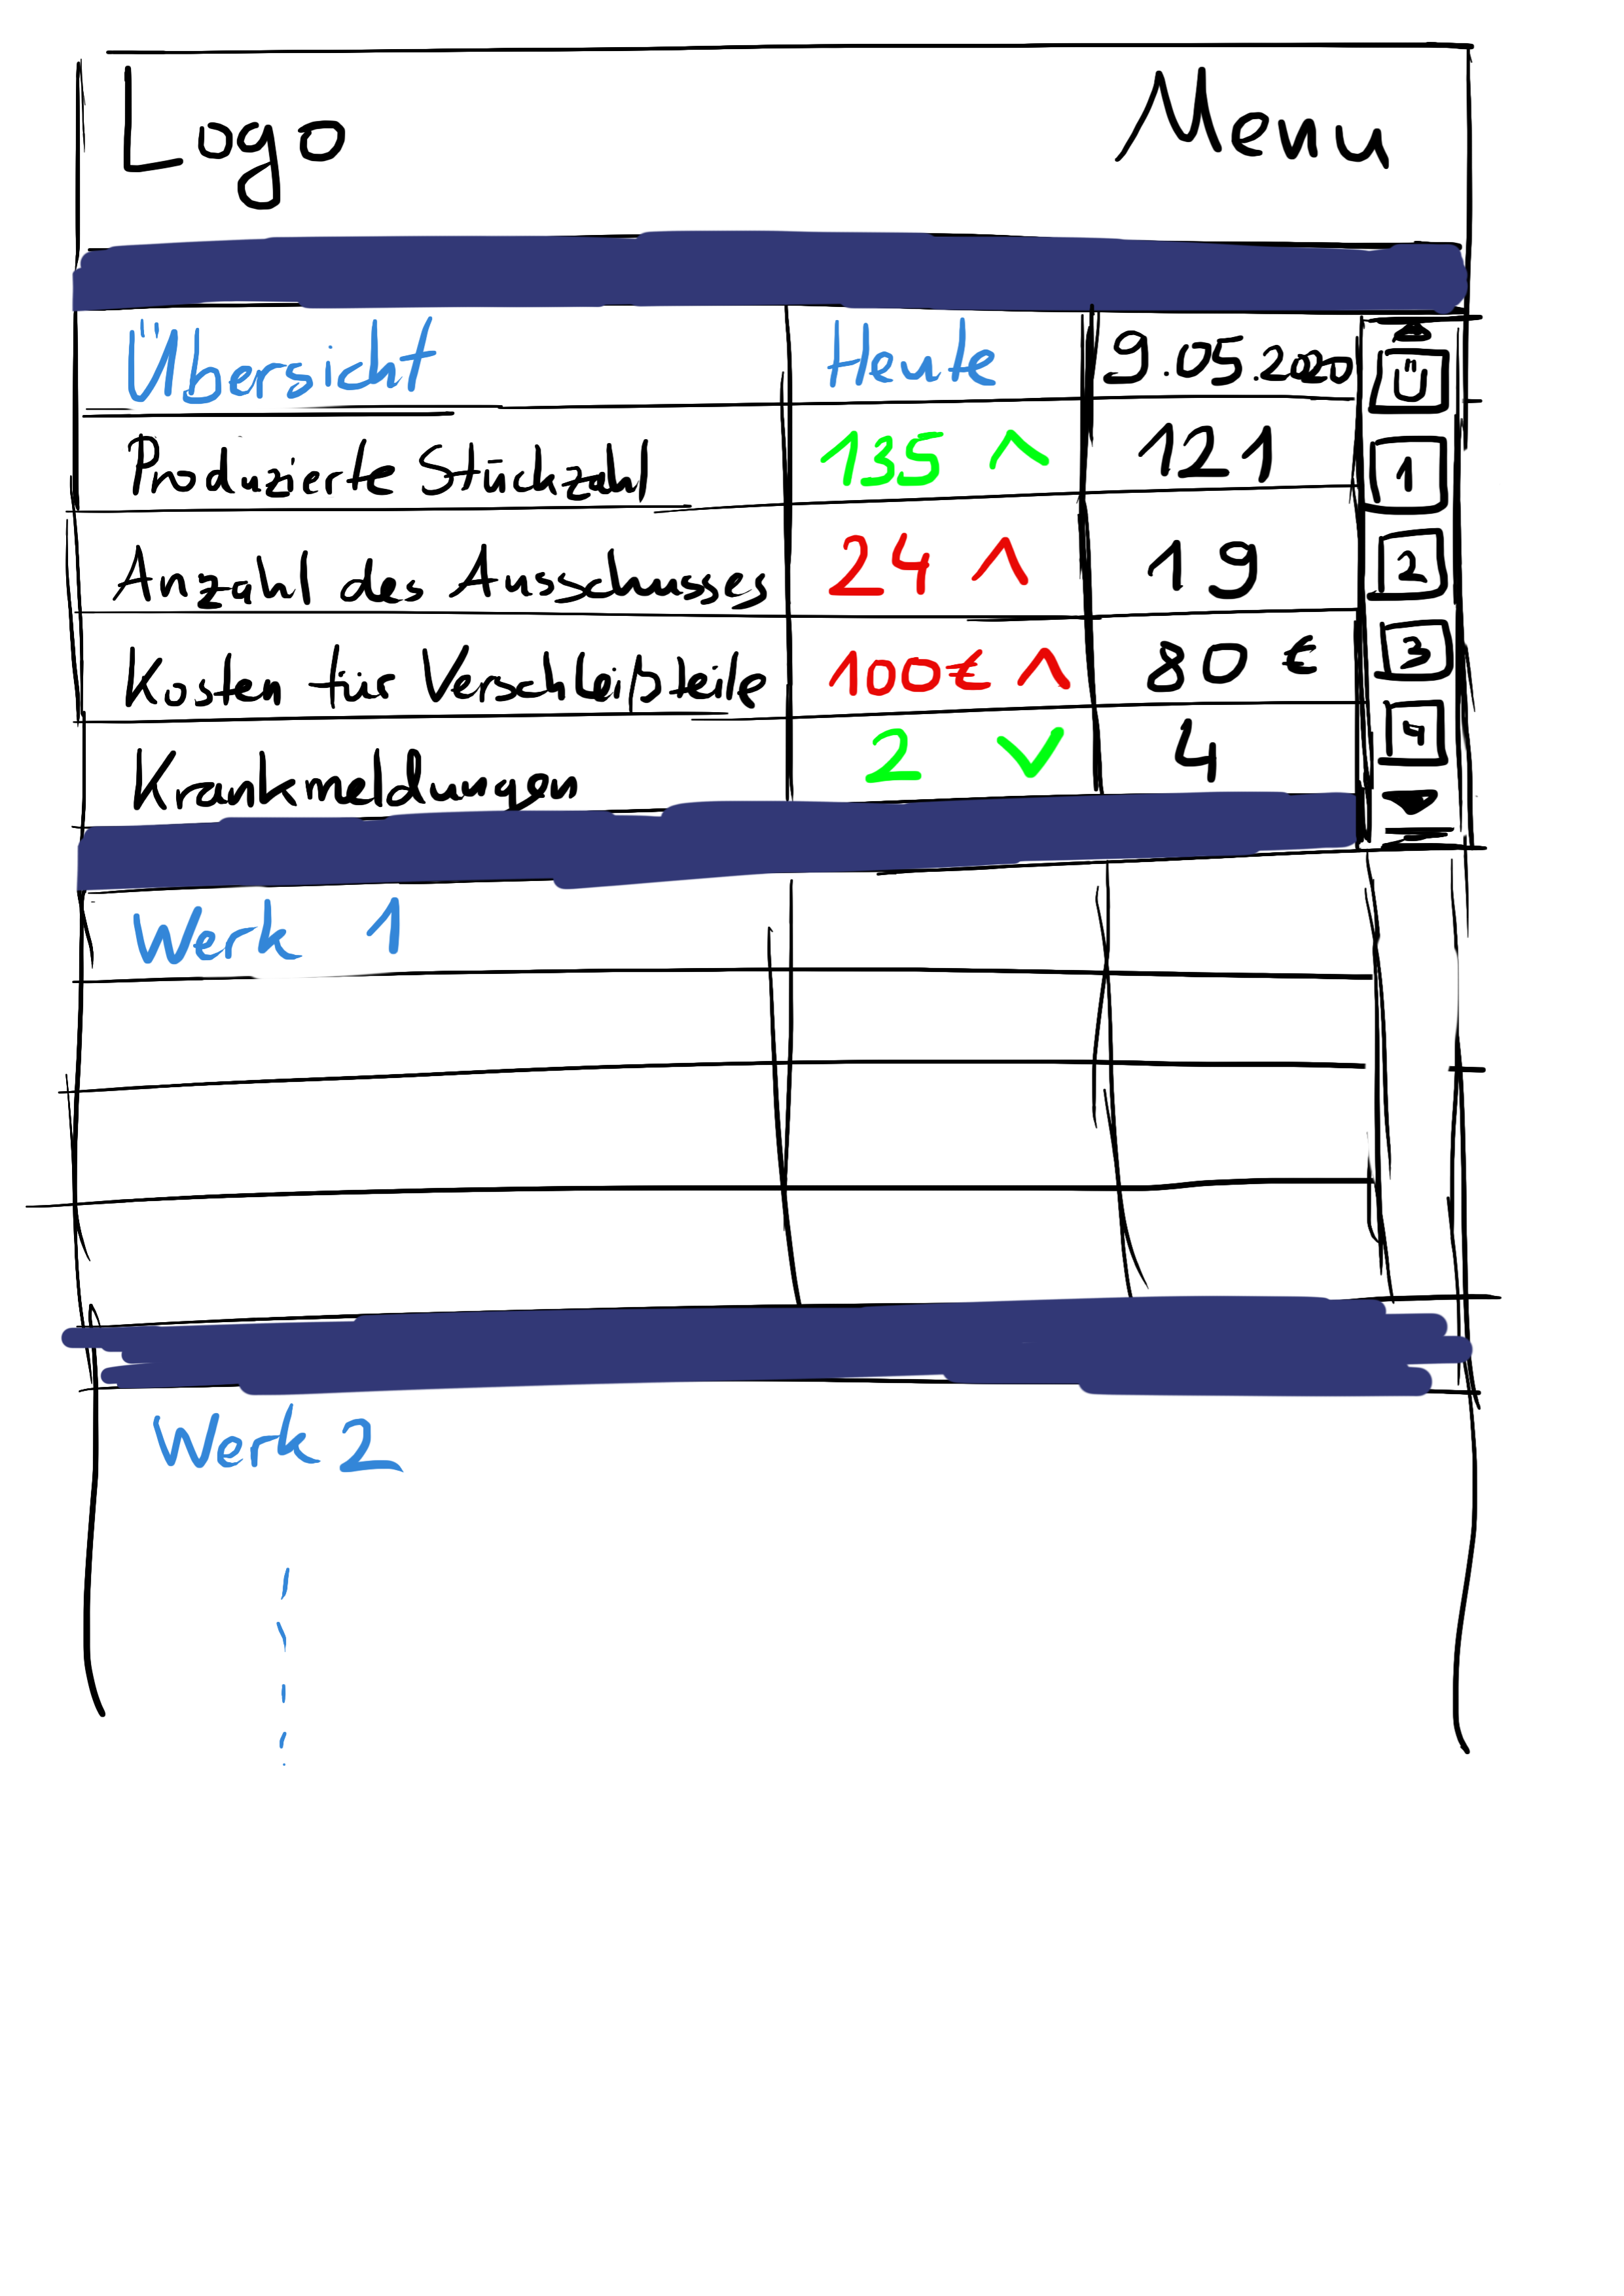 Logo Menu
Übersicht Heute 9.05.2020 Ü
Produzierte Stückzahl 135 ^ 121 1
Anzahl des Ausschusses 24 ^ 19 2
Kosten für Verschleißteile 100€ ^ 80 € 3
Krankmeldungen 2 v 4 4
Werk 1
Werk 2